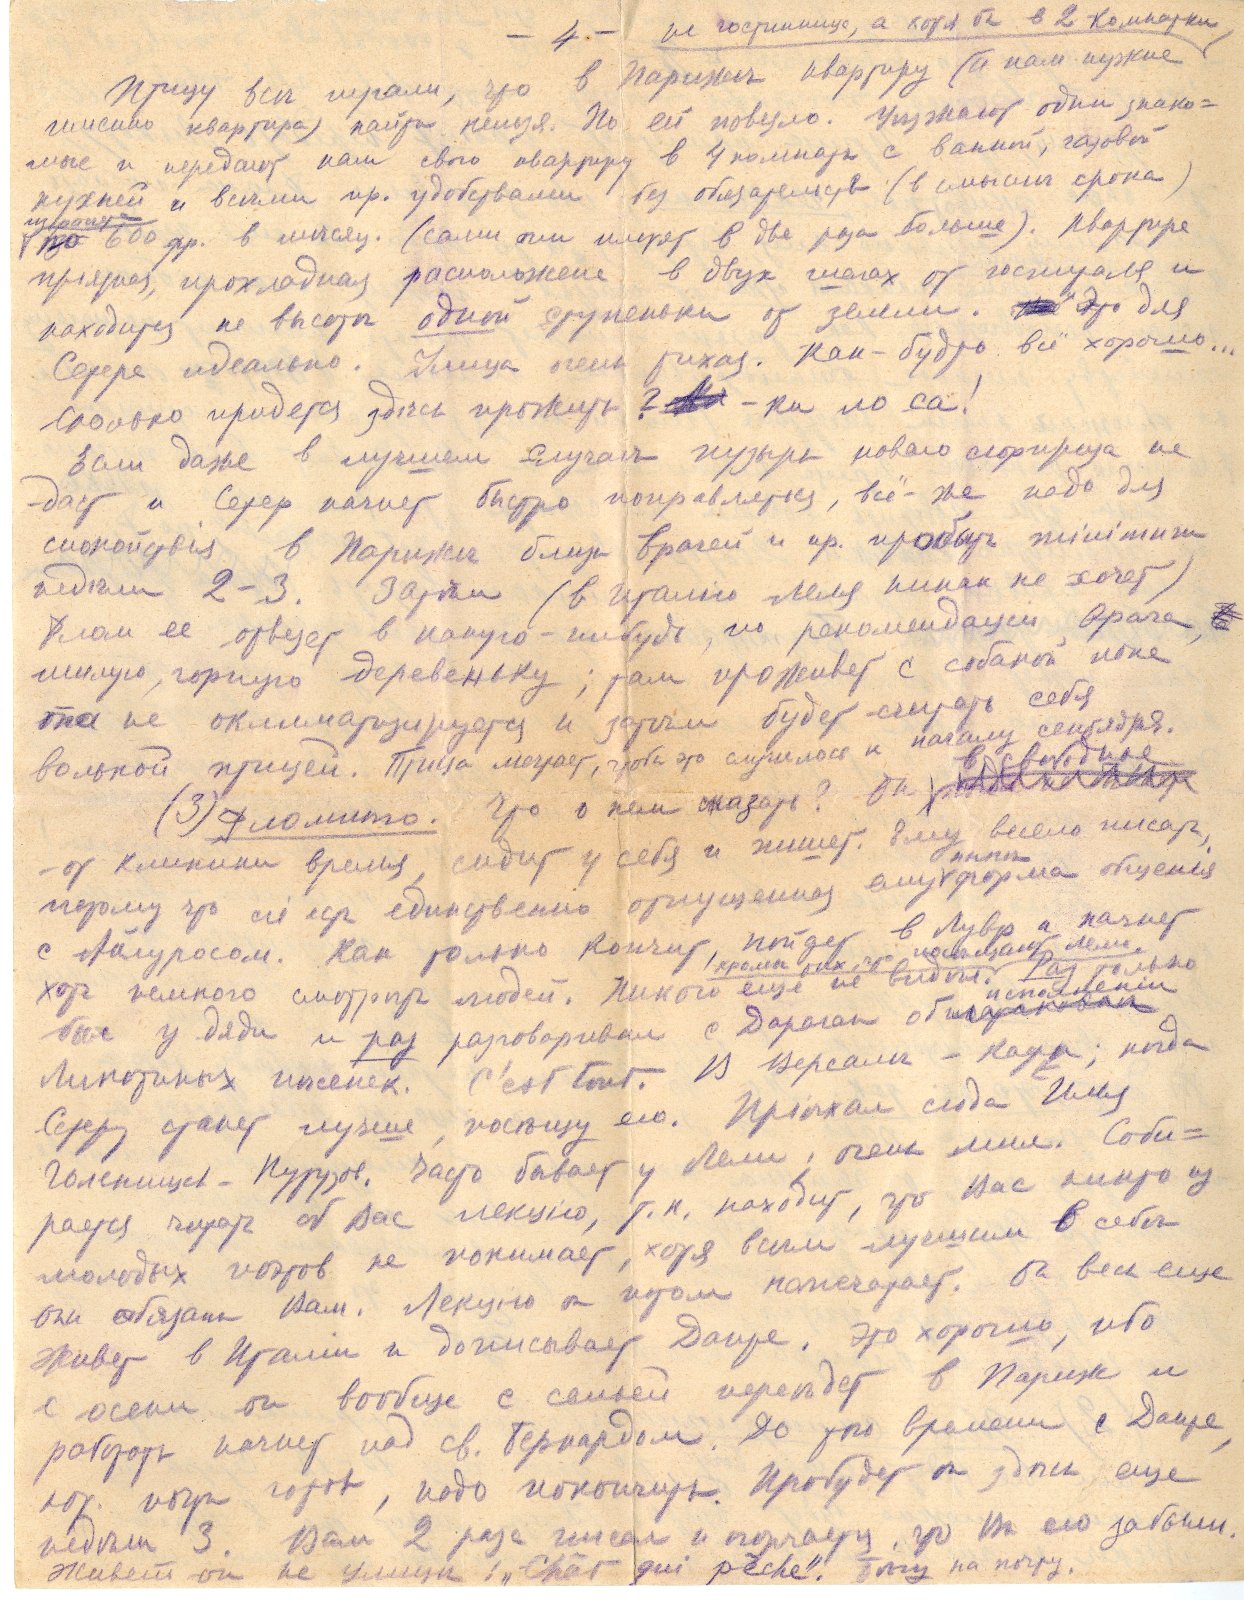 – 4. – не гостиница, а хотя бы в 2 комнатки,
Птицу все пугали, что в Париже квартиру (а нам нужна
именно квартира) найти нельзя. Но ей повезло. Уезжают одни знако=
мые и передают нам свою квартиру в 4 комнаты с ванной, газовой
кухней и всѣми пр. удобствами без обязательств (в смысле срока)
по 600 фр. в мѣсяц. (сами они платят в два раза больше). Квартира
прохладная расположена в двух шагах от госпиталя и
находится на высоте одной ступеньки от земли. Это для
Сетера идеально. Улица очень тихая. Как-будто всё хорошо...
Сколько придется здѣсь прожить? – ка ло са!
Если даже в лучшем случаѣ пузырь нового сюрприза не
даст и Сетер начнет быстро поправляться, всё-же надо для
спокойствiя в Парижѣ близ врачей и пр. пробыть minimum
недѣли 2–3. Затѣм (в Италiю Леля никак не хочет)
Флом ее отвезет в какую-нибудь, по рекомендацiи врача,
милую, горную деревеньку; там проживет с собакой пока
та не оклиматизируется и затѣм будет считать себя
вольной птицей. Птица мечтает, чтобы это случилось к началу сентября.
(3) Фломинго. Что о нем сказать? Он в свободное
от клиники время, сидит у себя и пишет. Ему весело писать,
потому что сiе есть единственно отпущенная ему форма общенiя
с Айлуросом. Как только кончит, пойдет в Лувр и начнет
хоть немного смотрѣть людей. Никого еще не видѣл, кромѣ тех что посѣщают Лелю. Раз только
был у дяди и раз разговаривал с Дараган об исполненiи
песенек. C'est tout. В Версале – Кафа; когда
Сетеру станет лучше, посѣщу его. Прiѣхал сюда Илья
Голенищев-Кутузов. Часто бывает у Лели; очень мил. Соби=
рается читать об Вас лекцiю, т.к. находит, что Вас никто из
молодых поэтов не понимает, хотя всѣм лучшим в себѣ
они обязаны Вам. Лекцiю он потом напечатает. Он весь еще
живет в Италiи и дописывает Данте. Это хорошо, ибо
с осени он вообще с семьей переѣдет в Париж и
работать начнет над св. Бернардом. До того времени с Данте,
кот. почти готов, надо покончить. Пробудет он здѣсь еще
недѣли 3. Вам 2 раза писал и огорчается, что Вы его забыли.
Живет он на улицѣ „Chat qui pêche“. Бегу на почту.